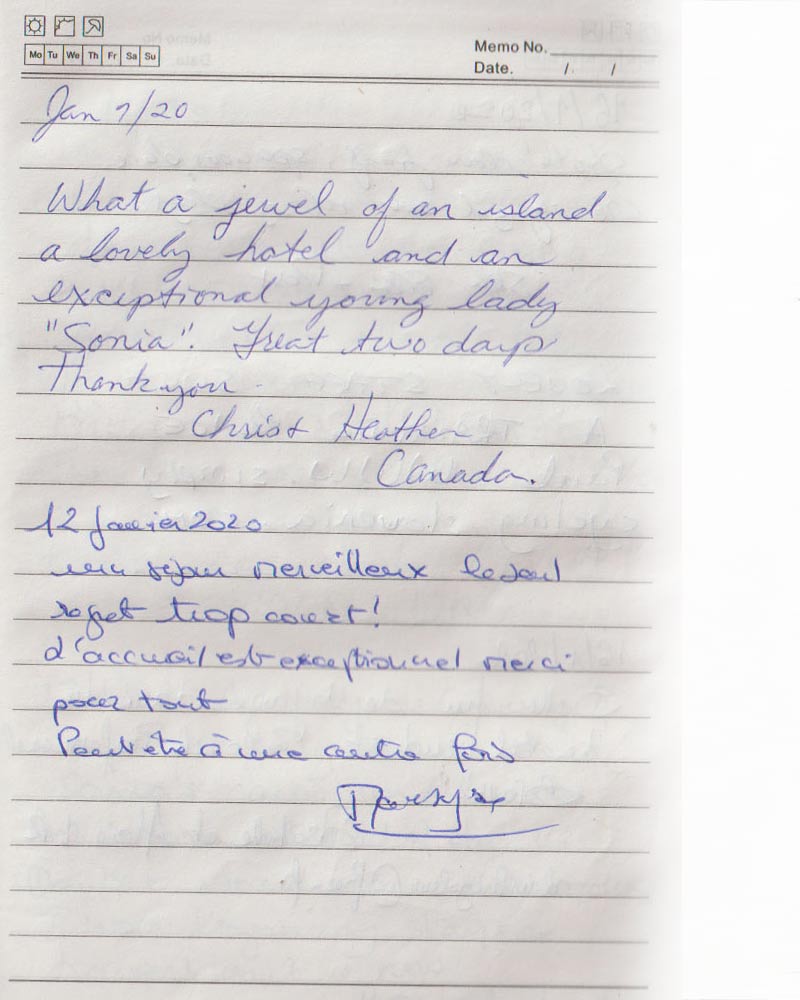 Mo Tu We Th Fr Sa Su
Memo No.
Date. / /
Jan 7/20
What a jewel of an island
a lovely hotel and an
exceptional young lady
"Sonia". Great two days
Thank you.
Chris & Heather
Canada.
12 Janvier 2020
un séjour merveilleux le seul
regret trop court!
l'accueil est exceptionnel merci
pour tout
Peut être à une autre fois